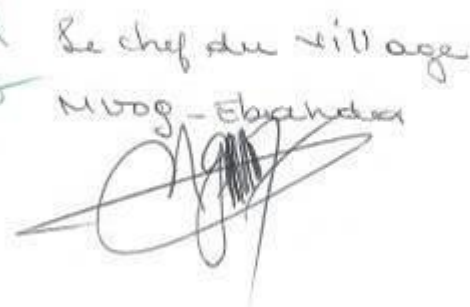 Le chef du village
Mvog-Ebanda